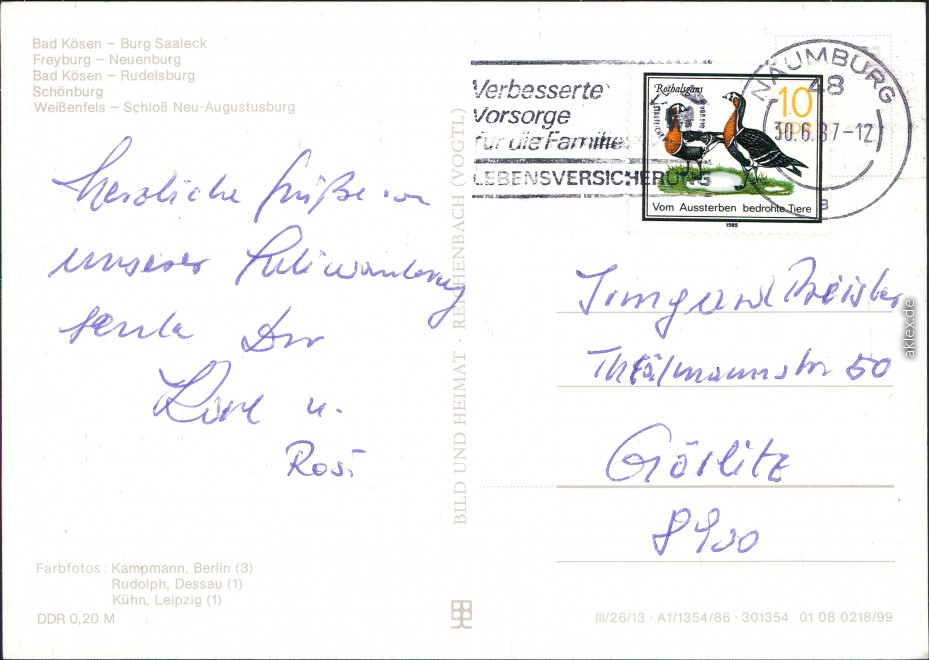 Bad Kösen – Burg Saaleck
Freyburg – Neuenburg
Bad Kösen – Rudelsburg
Schönburg
Weißenfels – Schloß Neu-Augustusburg
Herzliche Grüße von
unserer
sende Dir
u.
Rosi
Farbfotos: Kampmann, Berlin (3)
Rudolph, Dessau (1)
Kühn, Leipzig (1)
DDR 0,20 M
BILD UND HEIMAT · REICHENBACH (VOGTL)
Verbesserte
Vorsorge
für die Familie
LEBENSVERSICHERUNG
Rothalsgans
10
Vom Aussterben bedrohte Tiere
1985
NAUMBURG
48
30.6.87-12
a
Irmgard
Thälmannstr 50
Görlitz
8900
III/26/13 · A1/1354/86 · 301354 01 08 0218/99
aklex.de